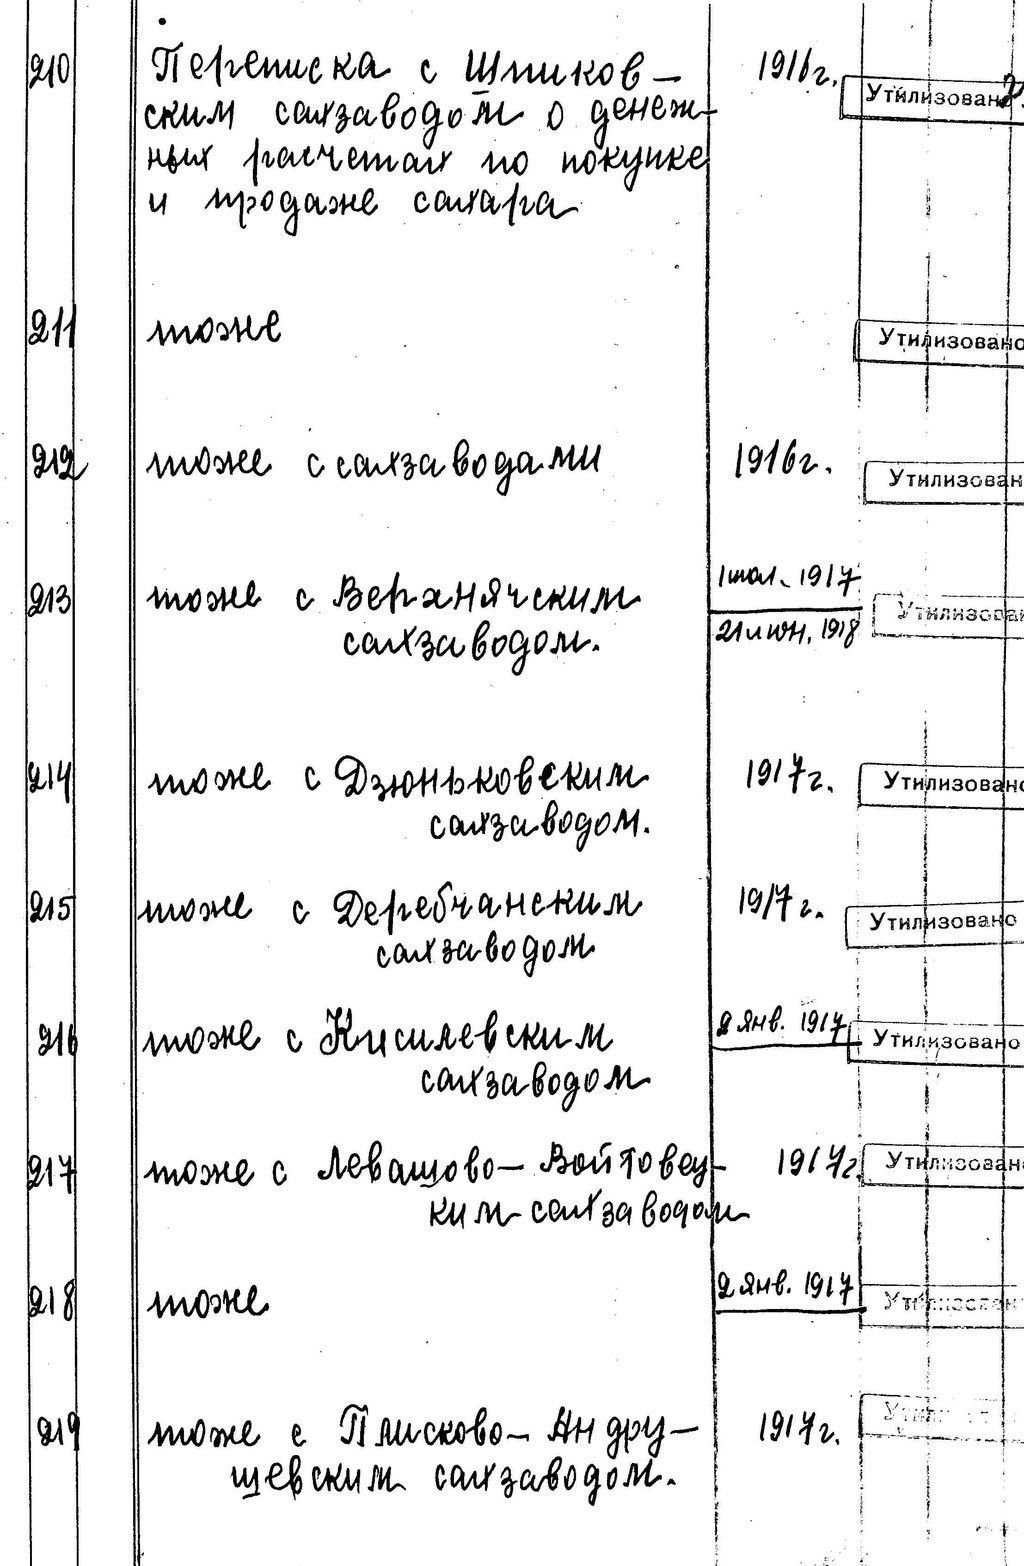 210 Переписка с Шпиков- 1916г. Утилизовано
ским сахзаводом о денеж-
ных расчетах по покупке
и продаже сахара
211 тоже Утилизовано
212 тоже с сахзаводами 1916г. Утилизован
213 тоже с Верхнячским 1 июл. 1917 Утилизован
сахзаводом. 21 июн. 1918
214 тоже с Дзюньковским 1917г. Утилизовано
сахзаводом.
215 тоже с Деребчанским 1917г. Утилизовано
сахзаводом
216 тоже с Кисилевским 2 янв. 1917 Утилизовано
сахзаводом
217 тоже с Левашово-Войтовец- 1917г. Утилизован
ким сахзаводом
218 тоже 2 янв. 1917 Утилизован
219 тоже с Плисково-Андру- 1917г.
шевским сахзаводом.